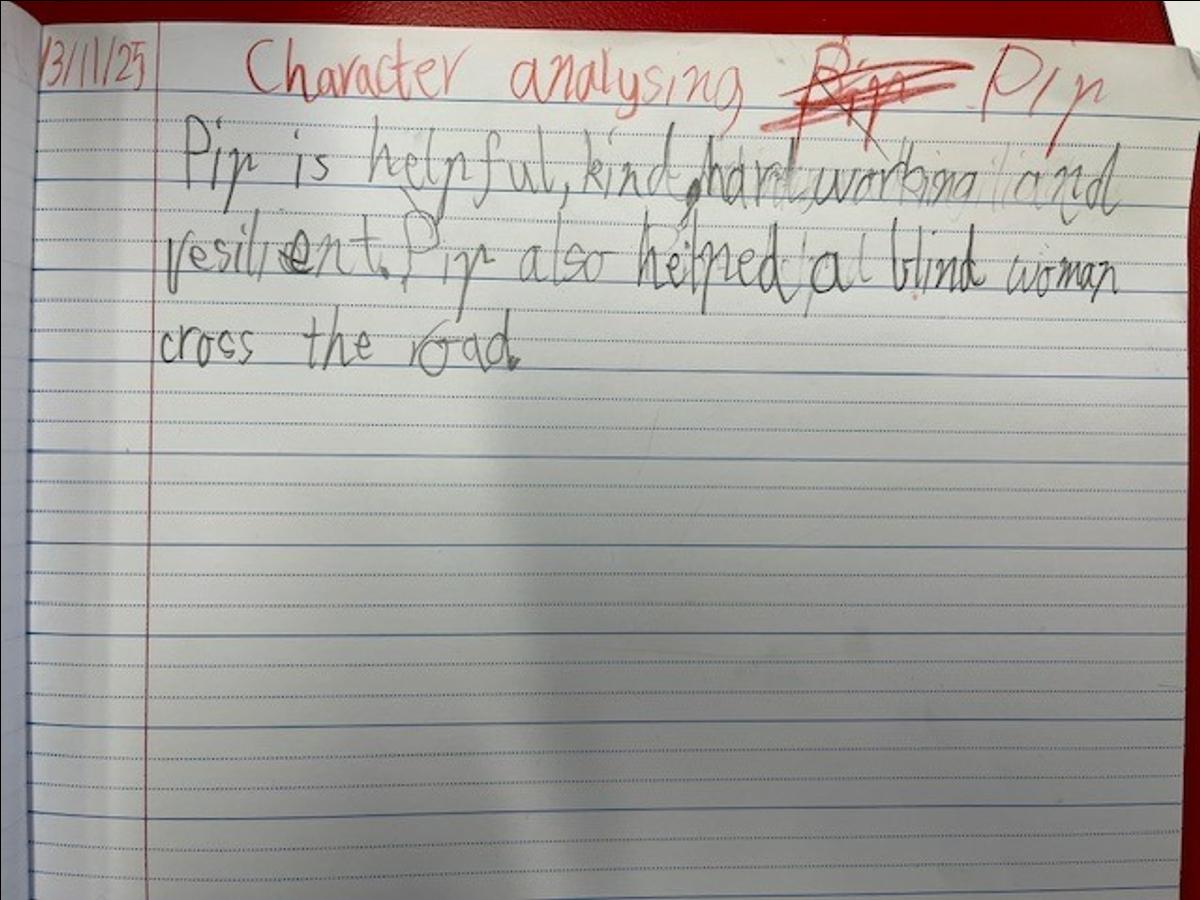 13/11/25 Character analysing Pip
Pip is helpful, kind, hard working and
resilient. Pip also helped a blind woman
cross the road.